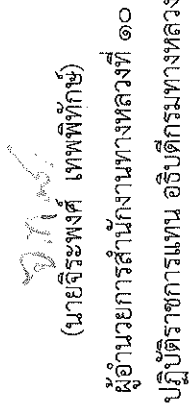 (นายจิระพงศ์ เทพพิทักษ์)
ผู้อำนวยการสำนักงานทางหลวงที่ ๑๐
ปฏิบัติราชการแทน อธิบดีกรมทางหลวง